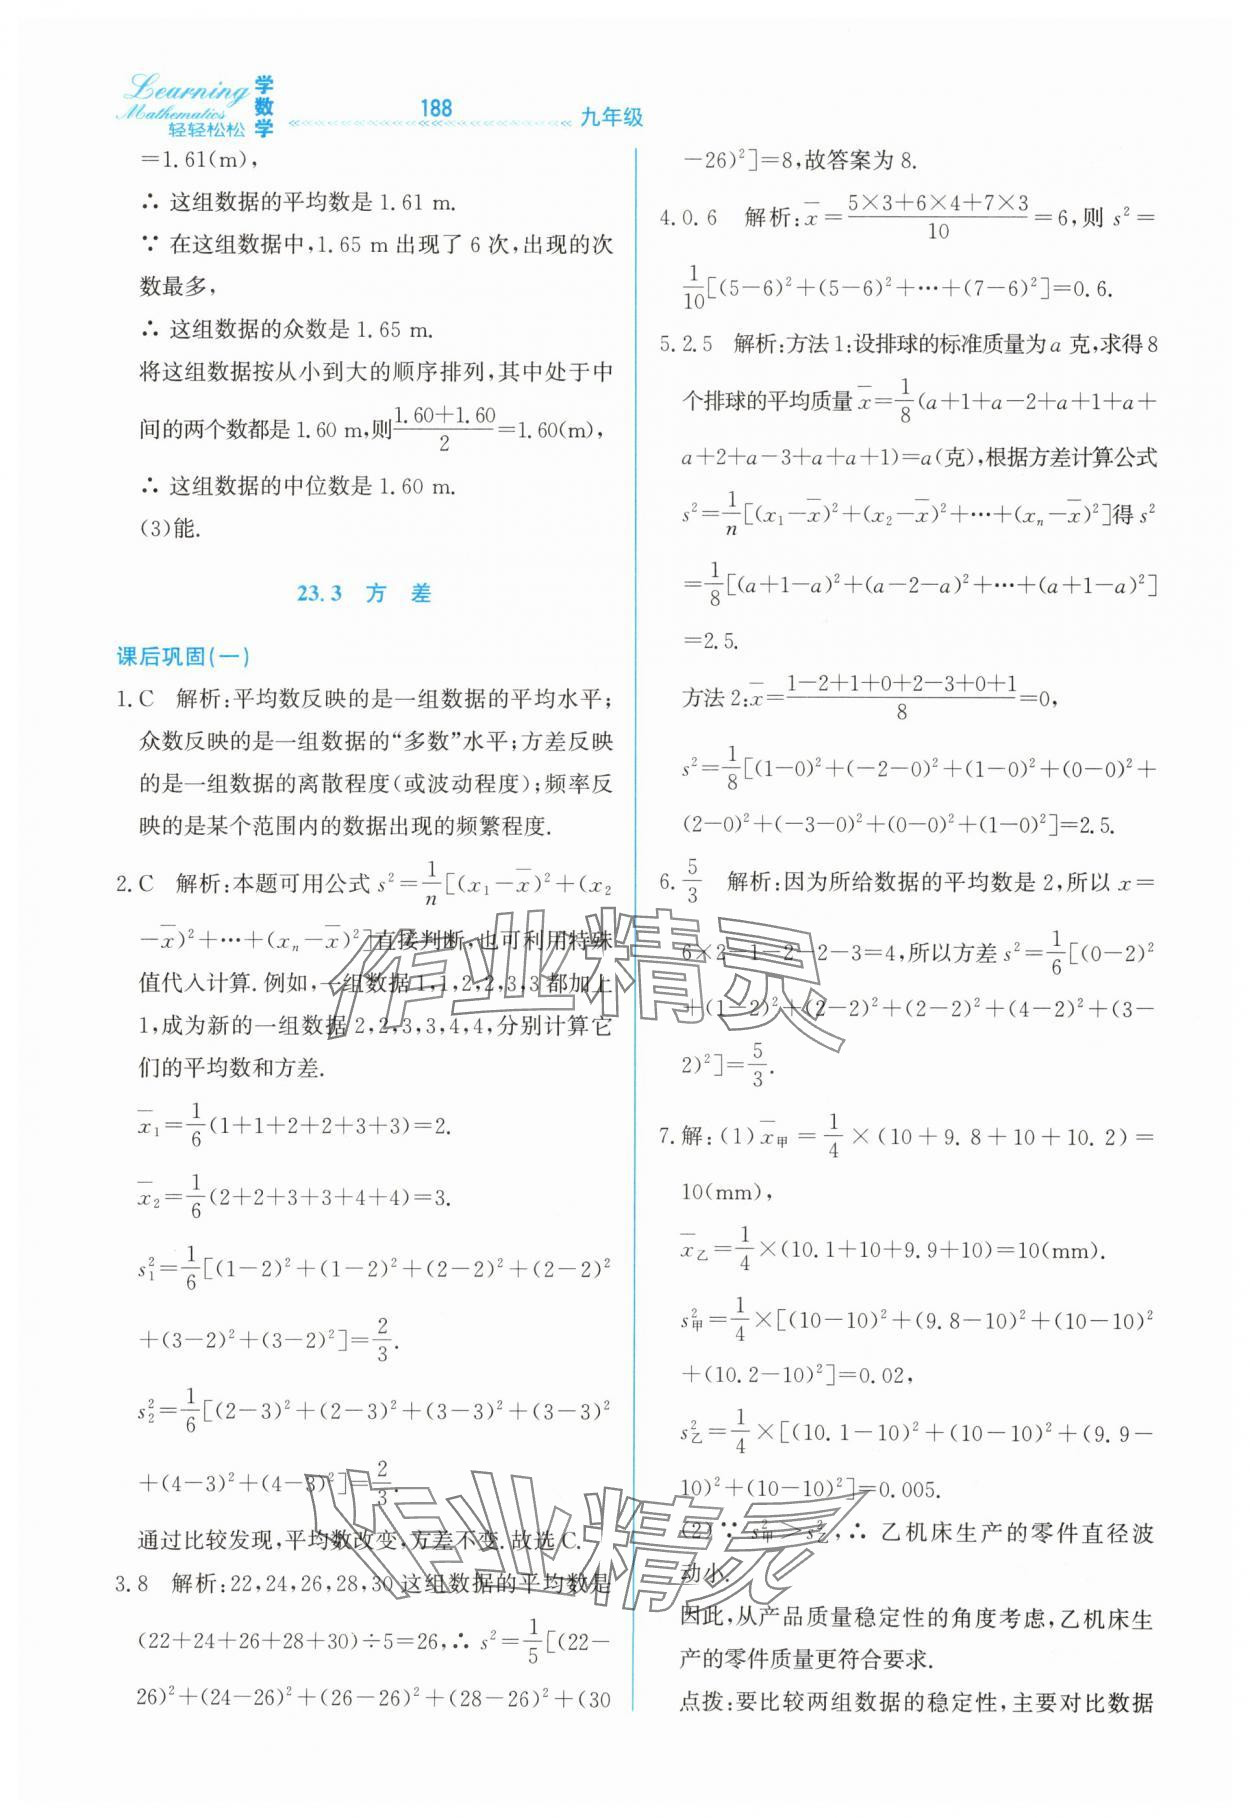 Learning
Mathematics
轻轻松松
学数学
188
九年级
=1.61(m),
∴ 这组数据的平均数是 1.61 m.
∵ 在这组数据中,1.65 m 出现了 6 次,出现的次
数最多,
∴ 这组数据的众数是 1.65 m.
将这组数据按从小到大的顺序排列,其中处于中
间的两个数都是 1.60 m,则(1.60+1.60)/2=1.60(m),
∴ 这组数据的中位数是 1.60 m.
(3)能.
23.3 方 差
课后巩固(一)
1.C 解析:平均数反映的是一组数据的平均水平;
众数反映的是一组数据的“多数”水平;方差反映
的是一组数据的离散程度(或波动程度);频率反
映的是某个范围内的数据出现的频繁程度.
2.C 解析:本题可用公式 s²=1/n[(x₁-x̄)²+(x₂
-x̄)²+⋯+(xₙ-x̄)²]直接判断,也可利用特殊
值代入计算.例如,一组数据 1,1,2,2,3,3 都加上
1,成为新的一组数据 2,2,3,3,4,4,分别计算它
们的平均数和方差.
x̄₁=1/6(1+1+2+2+3+3)=2.
x̄₂=1/6(2+2+3+3+4+4)=3.
s₁²=1/6[(1-2)²+(1-2)²+(2-2)²+(2-2)²
+(3-2)²+(3-2)²]=2/3.
s₂²=1/6[(2-3)²+(2-3)²+(3-3)²+(3-3)²
+(4-3)²+(4-3)²]=2/3.
通过比较发现,平均数改变,方差不变.故选 C.
3.8 解析:22,24,26,28,30 这组数据的平均数是
(22+24+26+28+30)÷5=26,∴ s²=1/5[(22-
26)²+(24-26)²+(26-26)²+(28-26)²+(30
-26)²]=8,故答案为 8.
4.0.6 解析:x̄=(5×3+6×4+7×3)/10=6,则 s²=
1/10[(5-6)²+(5-6)²+⋯+(7-6)²]=0.6.
5.2.5 解析:方法 1:设排球的标准质量为 a 克,求得 8
个排球的平均质量 x̄=1/8(a+1+a-2+a+1+a+
a+2+a-3+a+a+1)=a(克),根据方差计算公式
s²=1/n[(x₁-x̄)²+(x₂-x̄)²+⋯+(xₙ-x̄)²]得 s²
=1/8[(a+1-a)²+(a-2-a)²+⋯+(a+1-a)²]
=2.5.
方法 2:x̄=(1-2+1+0+2-3+0+1)/8=0,
s²=1/8[(1-0)²+(-2-0)²+(1-0)²+(0-0)²+
(2-0)²+(-3-0)²+(0-0)²+(1-0)²]=2.5.
6.5/3 解析:因为所给数据的平均数是 2,所以 x=
6×2-1-2-2-3=4,所以方差 s²=1/6[(0-2)²
+(1-2)²+(2-2)²+(2-2)²+(4-2)²+(3-
2)²]=5/3.
7.解:(1)x̄甲=1/4×(10+9.8+10+10.2)=
10(mm),
x̄乙=1/4×(10.1+10+9.9+10)=10(mm).
s²甲=1/4×[(10-10)²+(9.8-10)²+(10-10)²
+(10.2-10)²]=0.02,
s²乙=1/4×[(10.1-10)²+(10-10)²+(9.9-
10)²+(10-10)²]=0.005.
(2)∵ s²甲>s²乙,∴ 乙机床生产的零件直径波
动小.
因此,从产品质量稳定性的角度考虑,乙机床生
产的零件质量更符合要求.
点拨:要比较两组数据的稳定性,主要对比数据
作业精灵
作业精灵